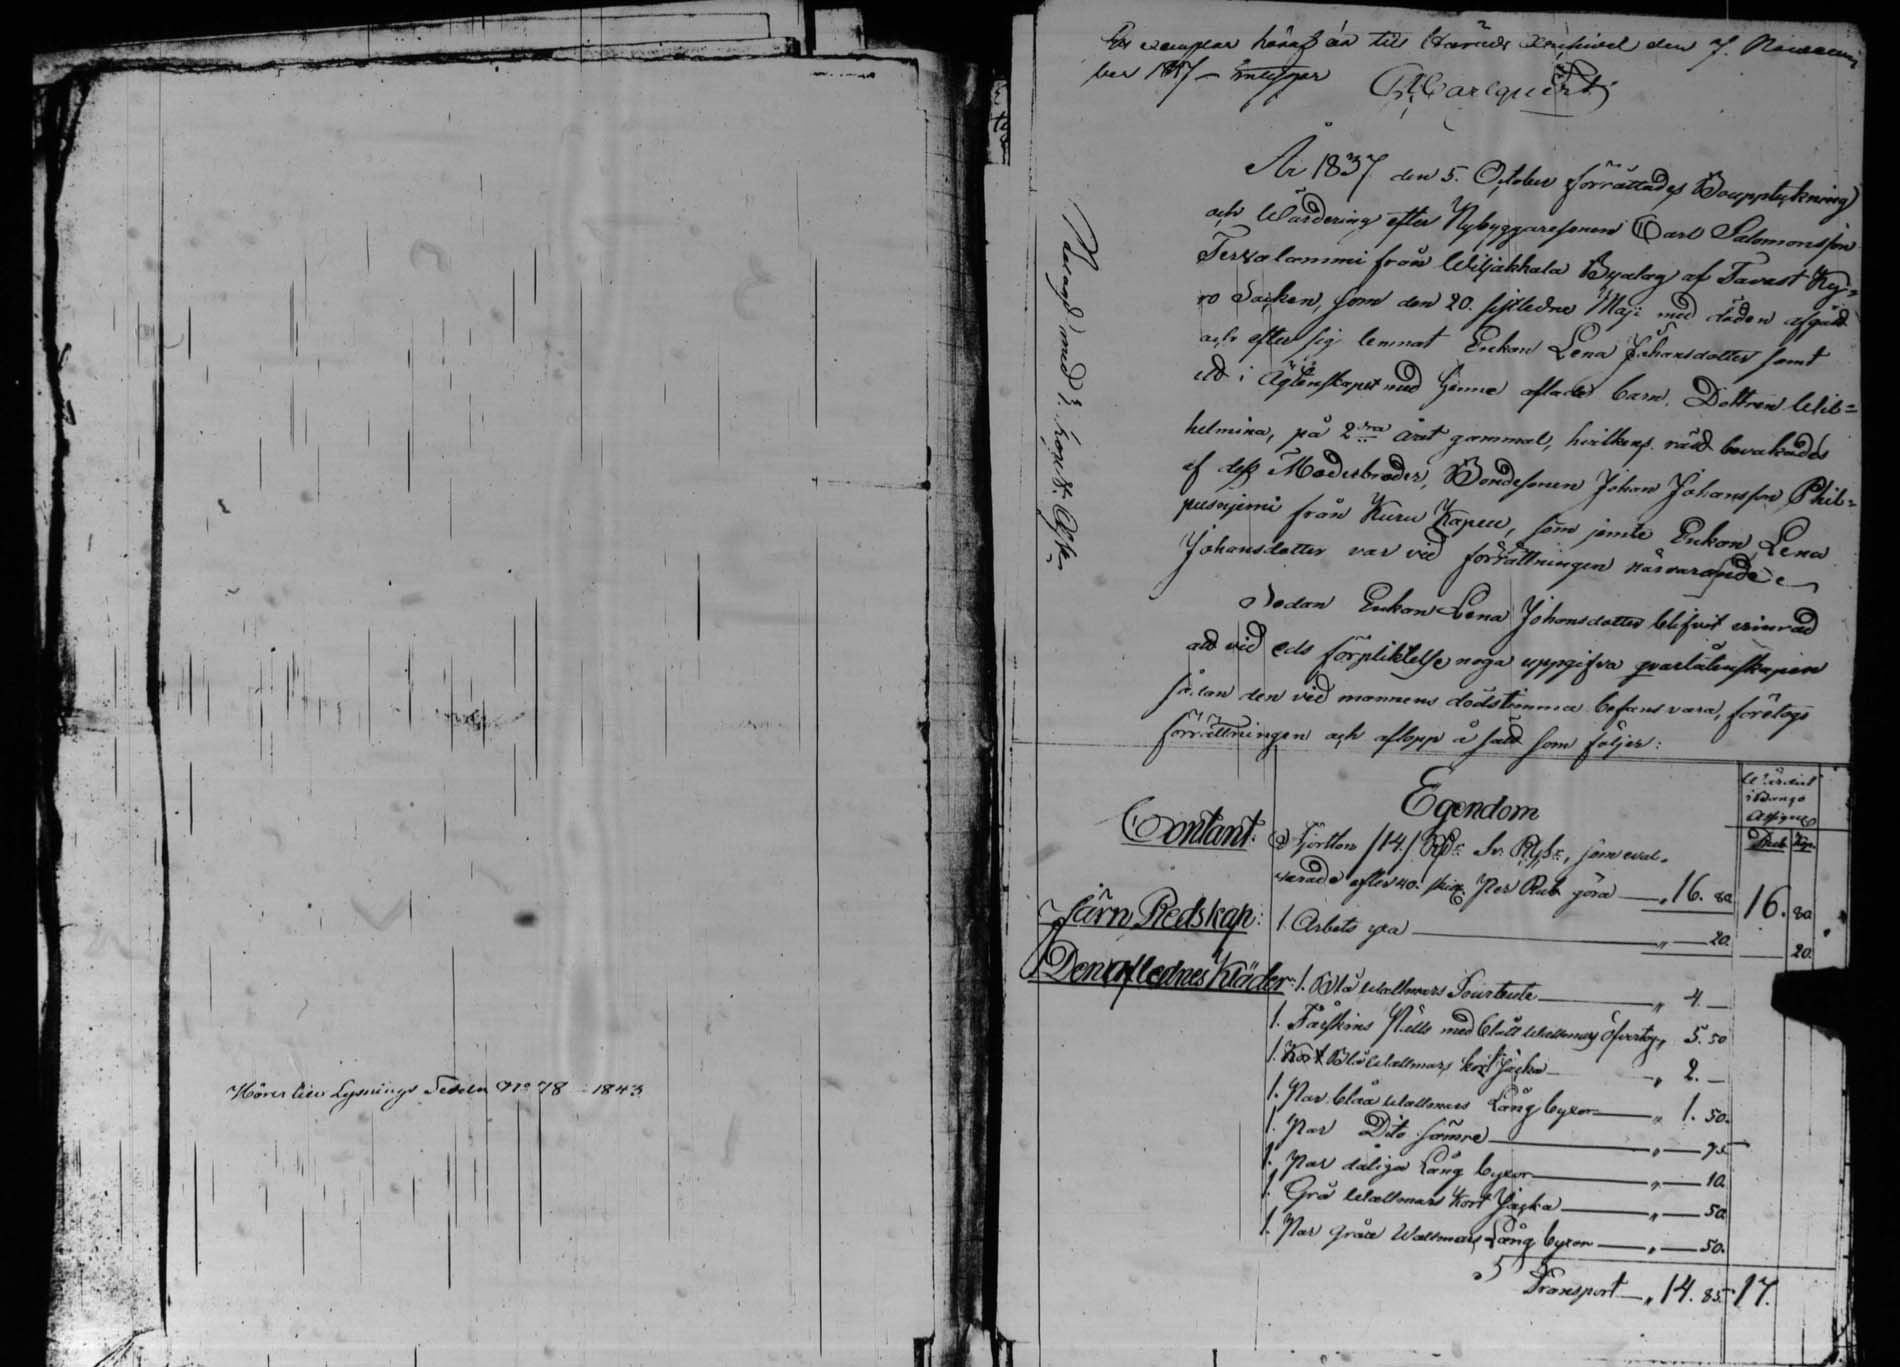 Hörer till Lysnings Sedeln No 78 - 1843
exemplar häraf är till Härads Archivet den 7. Novem-
ber 1837
Carlquist
År 1837 den 5. October förrättades Bouppteckning
och Wärdering efter Nybyggaresonen Carl Salomonsson
Tervalammi från Wiljakkala Byalag af Tavast Ky=
ro Socken, som den 20. sistledne Maji med döden afgådt
och efter sig lemnat Enkan Lena Johansdotter samt
ett i Ägtenskapet med henne aflade barn, Dottren Wil=
helmina, på 2dra året gammal, hvilkens rätt bevakades
af dess Moderbroder, Bondesonen Johan Johansson Phil=
pusnjemi från Kuru Kapell, som jemte Enkan Lena
Johansdotter var vid förrättningen närvarande
Sedan Enkan Lena Johansdotter blifvit erinrad
att vid eds förpliktelse noga uppgifva qvarlåtenskapen
sådan den vid mannens dödstimma befans vara, företogs
förrättningen och aflopp å sätt som följer:
Egendom
Wärdiet
i Banco
Assigner
Rub. Kop.
Contant.
Fjortton /14./ Rdr Sv: Rgs, som eval-
verade efter 40. skill. per Rub göra — „ 16. 80. 16. 80
Järn Redskap:
1. Arbets yxa — „ — 20. — 20.
Den aflednes Kläder:
1. Blå Wallmars Sourtoute — „ 4. —
1. Fårskins Päls med blått Wallmars öfvertyg „ 5. 50
1. Blå Wallmars kort Jacka — „ 2. —
1. Par blåa Wallmars Lång byxor — „ 1. 50.
1. Par Dito sämre — „ — 75
1. Par dåliga Lång byxor — „ — 10.
1. Grå Wallmars Kort Jacka — „ — 50
1. Par gråa Wallmars Lång byxor — „ — 50.
Transport — „ 14. 85. 17.